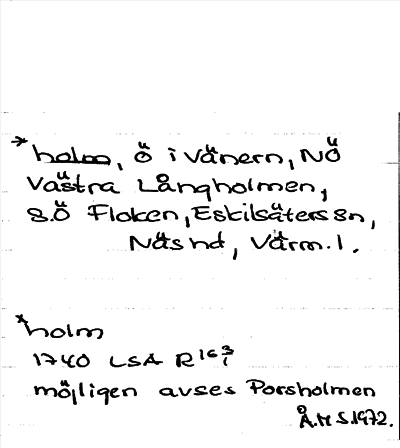 *holm, Ö i Vänern, NÖ
Västra Långholmen,
S.Ö Floken, Eskilsäters sn,
Näs hd, Värm. l.
*holm
1740 LSA R16 3/1
möjligen avses Porsholmen
Å.M S.1972.